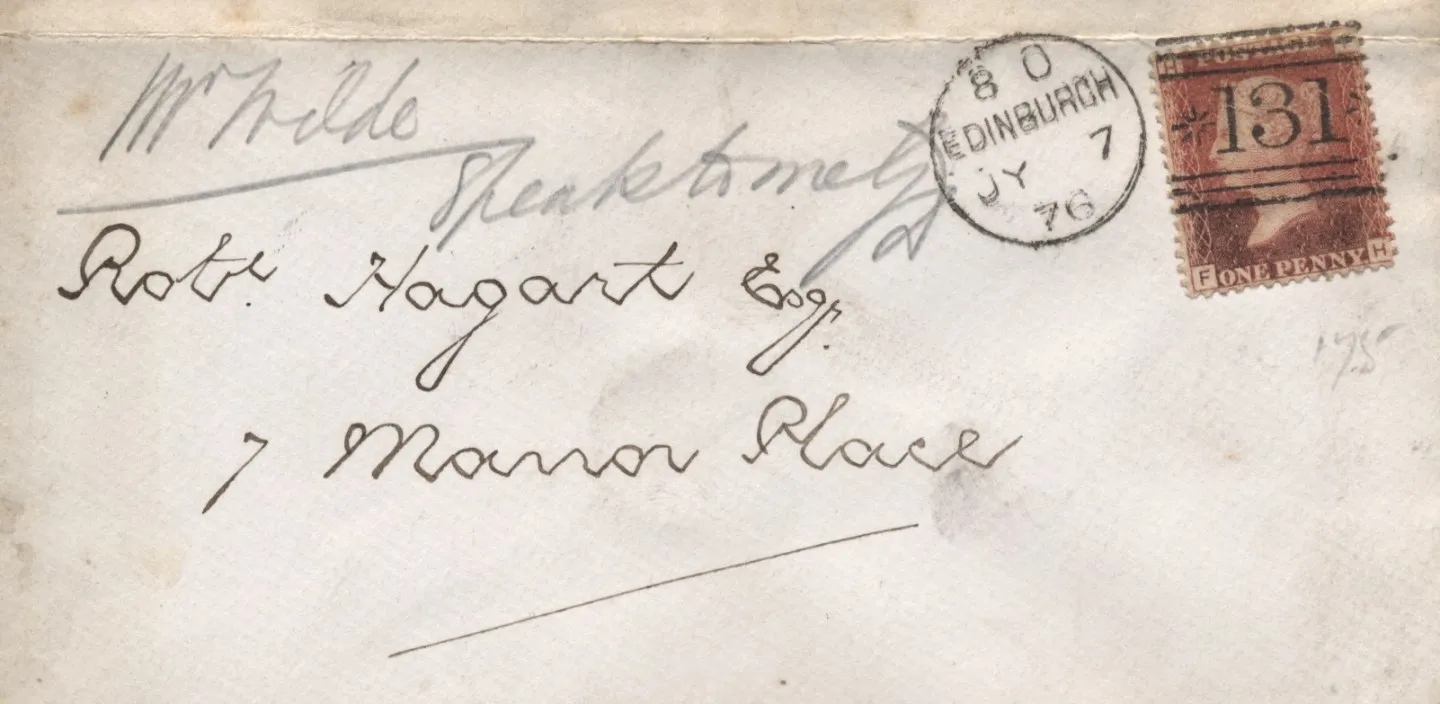 Mr Wilde
Speak to me
Robt. Hagart Esqr.
7 Manor Place
8 O
EDINBURGH
JY 7
76
H POSTAGE F
131
F ONE PENNY H
175